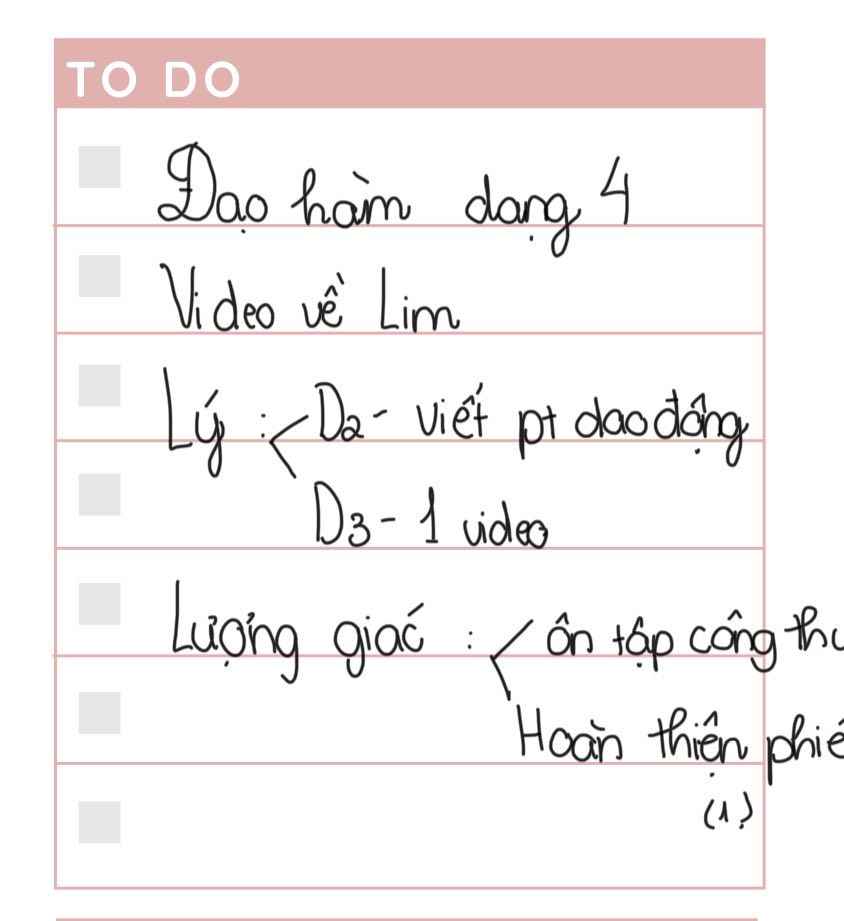 TO DO
Đạo hàm dạng 4
Video về Lim
Lý : D2 - viết pt dao động
D3 - 1 video
Lượng giác : ôn tập công
Hoàn thiện
(1)